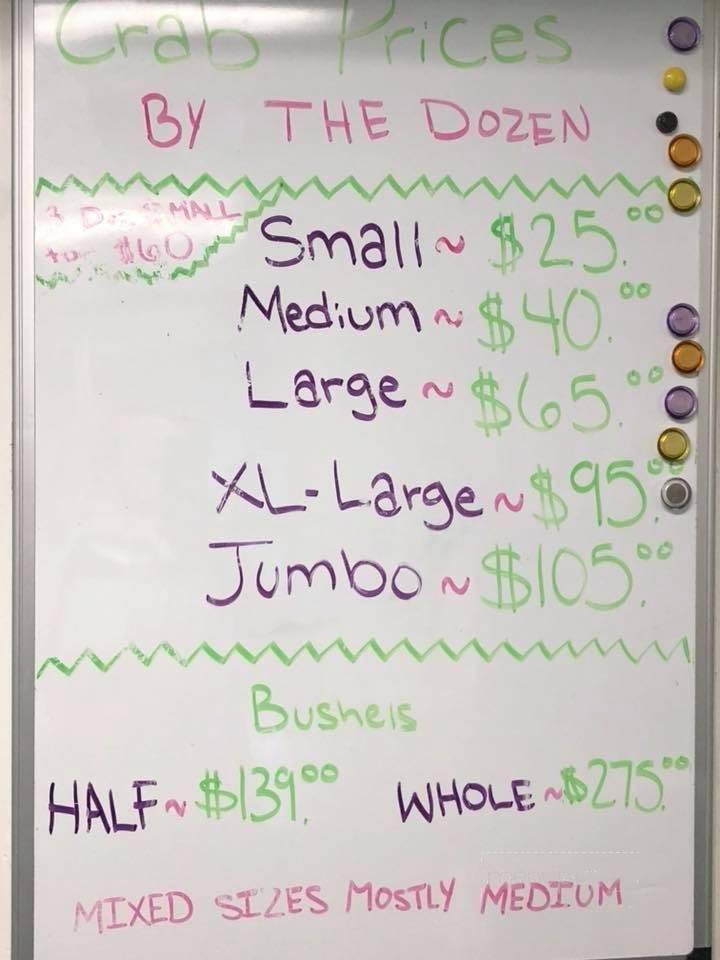 Crab Prices
BY THE DOZEN
3 Doz SMALL
for $60
Small ~ $25.00
Medium ~ $40.00
Large ~ $65.00
XL-Large ~ $95.00
Jumbo ~ $105.00
Bushels
HALF ~ $139.00 WHOLE ~ $275.00
MIXED SIZES MOSTLY MEDIUM